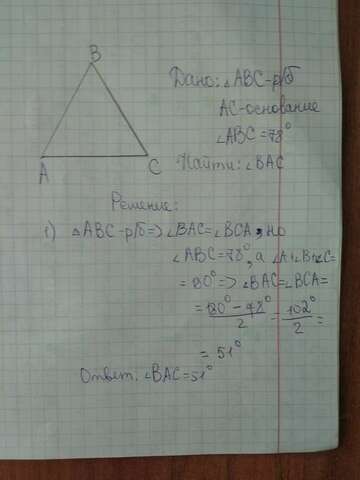 B
A
C
Дано: ∠ABC-р/б
AC-основание
∠ABC=78°
Найти: ∠BAC
Решение:
1) △ABC-р/б=>∠BAC=∠BCA, но
∠ABC=78°, а ∠A+∠B+∠C=
=180°=>∠BAC=∠BCA=
=180°-78°/2=102°/2=
=51°
Ответ. ∠BAC=51°